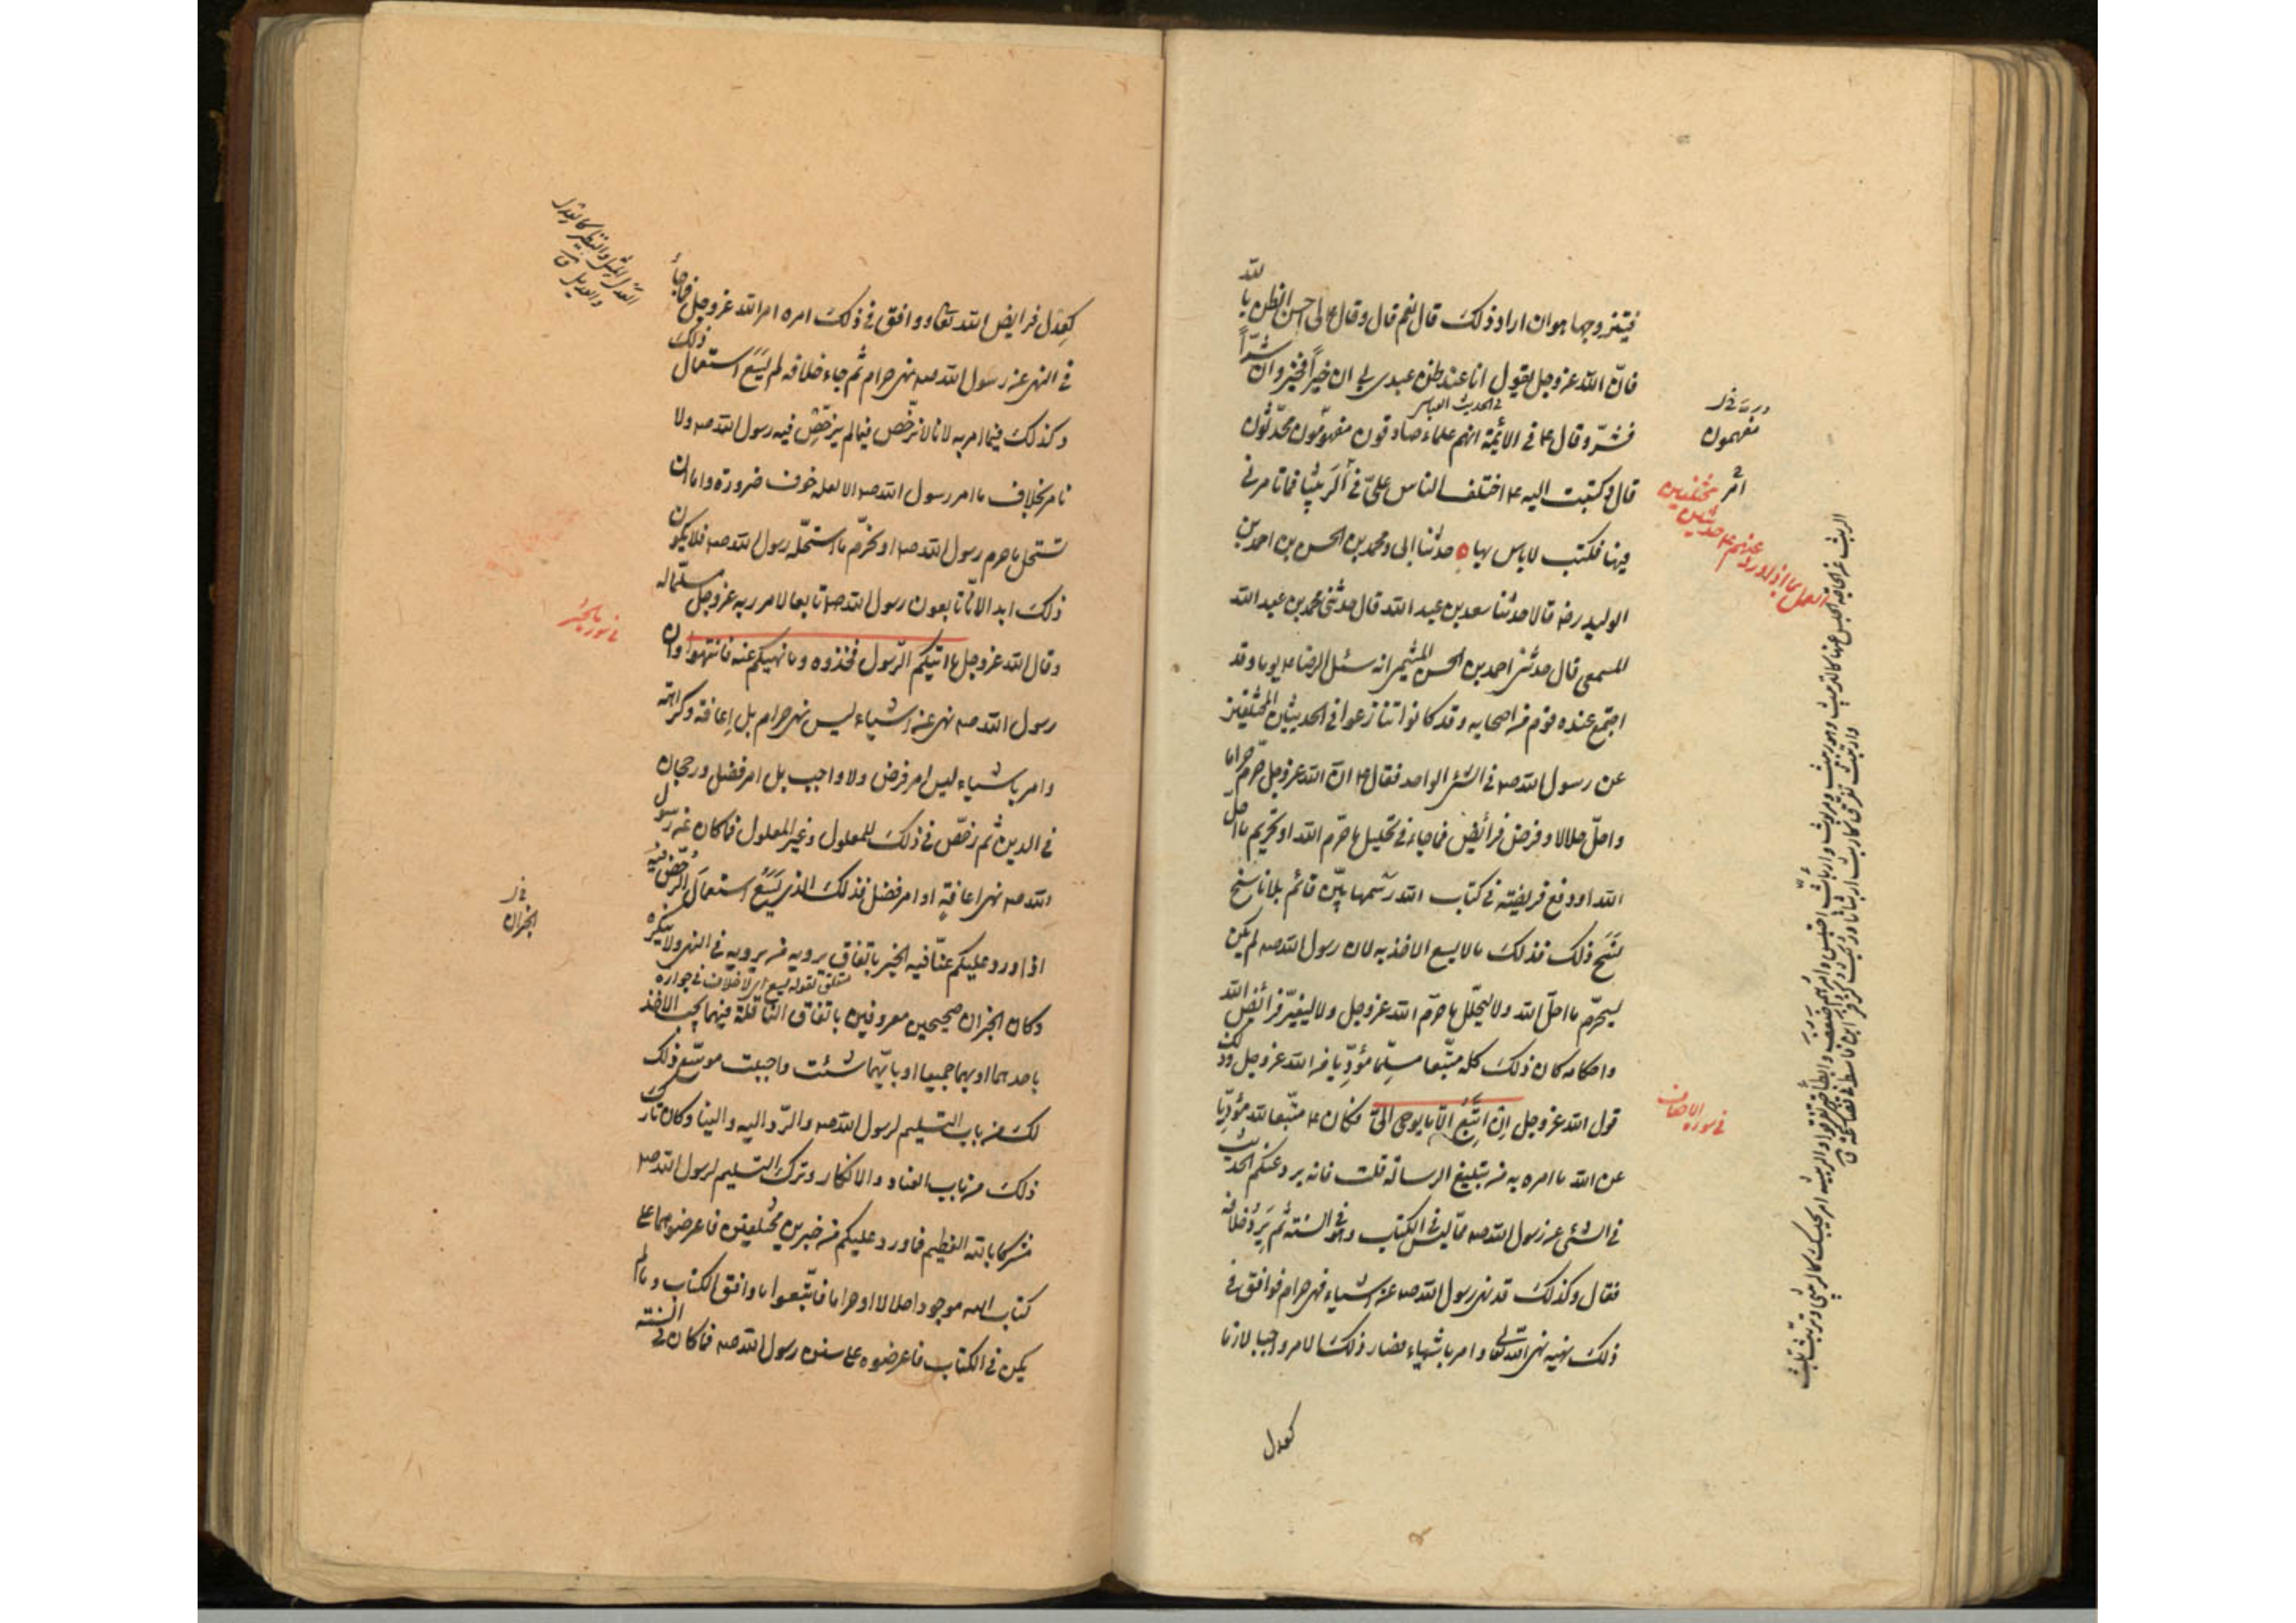 لله
فيتزوجها هو ان اراد ذلك قال نعم قال وقال ع لى احسن الظن با
فانّ الله عز وجل يقول انا عند ظن عبدى بى ان خيراً فخير وان شرّاً
فى الحديث القياس
فشرّ وقال ع فى الائمة انهم علماء صادقون مفهّمون محدّثون
قال وكتبت اليه ع اختلف الناس علىّ فى الربيثا فما تامرنى
فيها فكتب لا باس بها ه حدثنا ابى ومحمد بن الحسن بن احمد بن
الوليد رضه قالا حدثنا سعد بن عبد الله قال حدثنى محمد بن عبد الله
المسمعى قال حدثنى احمد بن الحسن الميثمى انه سئل الرضا ع يوما وقد
اجتمع عنده قوم من اصحابه وقد كانوا تنازعوا فى الحديثين المختلفين
عن رسول الله صه فى الشئ الواحد فقال ع انّ الله عز وجل حرّم حراما
واحلّ حلالا وفرض فرائض فما جاء فى تحليل ما حرّم الله او تحريم ما احلّ
الله او دفع فريضته فى كتاب الله رسمها بيّن قائم بلا ناسخ
نسخ ذلك فذلك ما لا يسع الاخذ به لان رسول الله صه لم يكن
ليحرّم ما احلّ الله ولا ليحلّل ما حرّم الله عز وجل ولا ليغيّر فرائض الله
واحكامه كان ذلك كله متّبعا مسلّما مؤدّيا من الله عز وجل وذلك
قول الله عز وجل ان اتّبع الّا ما يوحى الىّ فكان ع متّبعا لله مؤدّيا
عن الله ما امره به من تبليغ الرسالة قلت فانه يرد عنكم الحديث
فى الشئ عن رسول الله صه ممّا ليس فى الكتاب وهو فى السنة ثم يرد خلافه
فقال وكذلك قد نهى رسول الله صه عن اشياء نهى حرام فوافق فى
ذلك نهيه نهى الله تعالى وامر باشياء فصار ذلك الامر واجبا لازما
كعدل
مفهمون
فى سورة الاحقاف
كعدل فرايض الله تعالى ووافق فى ذلك امره امر الله عز وجل فما جاء
فى النهى عن رسول الله صه نهى حرام ثم جاء خلافه لم يسع استعمال ذلك
وكذلك فيما امر به لانا لا نرخّص فيما لم يرخّص فيه رسول الله صه ولا
نامر بخلاف ما امر رسول الله صه الا لعلة خوف ضرورة واما ان
نستحل ما حرم رسول الله صه او نحرّم ما استحلّه رسول الله صه فلا يكون
ذلك ابدا لانّا تابعون رسول الله صه تابعا لامر ربه عز وجل مسلّما له
وقال الله عز وجل ما اتيكم الرسول فخذوه وما نهيكم عنه فانتهوا وان
رسول الله صه نهى عن اشياء ليس نهى حرام بل اعافة وكراهة
وامر باشياء ليس امر فرض ولا واجب بل امر فضل ورجحان
فى الدين ثم رخّص فى ذلك للمعلول وغير المعلول فما كان عن رسول
الله صه نهى اعافة او امر فضل فذلك الذى يسع استعمال الرخص فيه
اذا ورد عليكم عنّا فيه الخبر باتفاق يرويه من يرويه فى النهى ولا ينكره
وكان الخبران صحيحين معروفين باتفاق الناقلة فيهما يجب الاخذ
باحدهما او بهما جميعا او بايّهما شئت واحببت موسّع ذلك
لك من باب التسليم لرسول الله صه والرّد اليه والينا وكان تارك
ذلك من باب العناد والانكار وترك التسليم لرسول الله صه
مشركا بالله العظيم فما ورد عليكم من خبرين مختلفين فاعرضوهما على
كتاب الله موجودا حلالا او حراما فاتّبعوا ما وافق الكتاب وما لم
يكن فى الكتاب فاعرضوه على سنن رسول الله صه فما كان فى السنة
فى سورة الحشر
الخبران